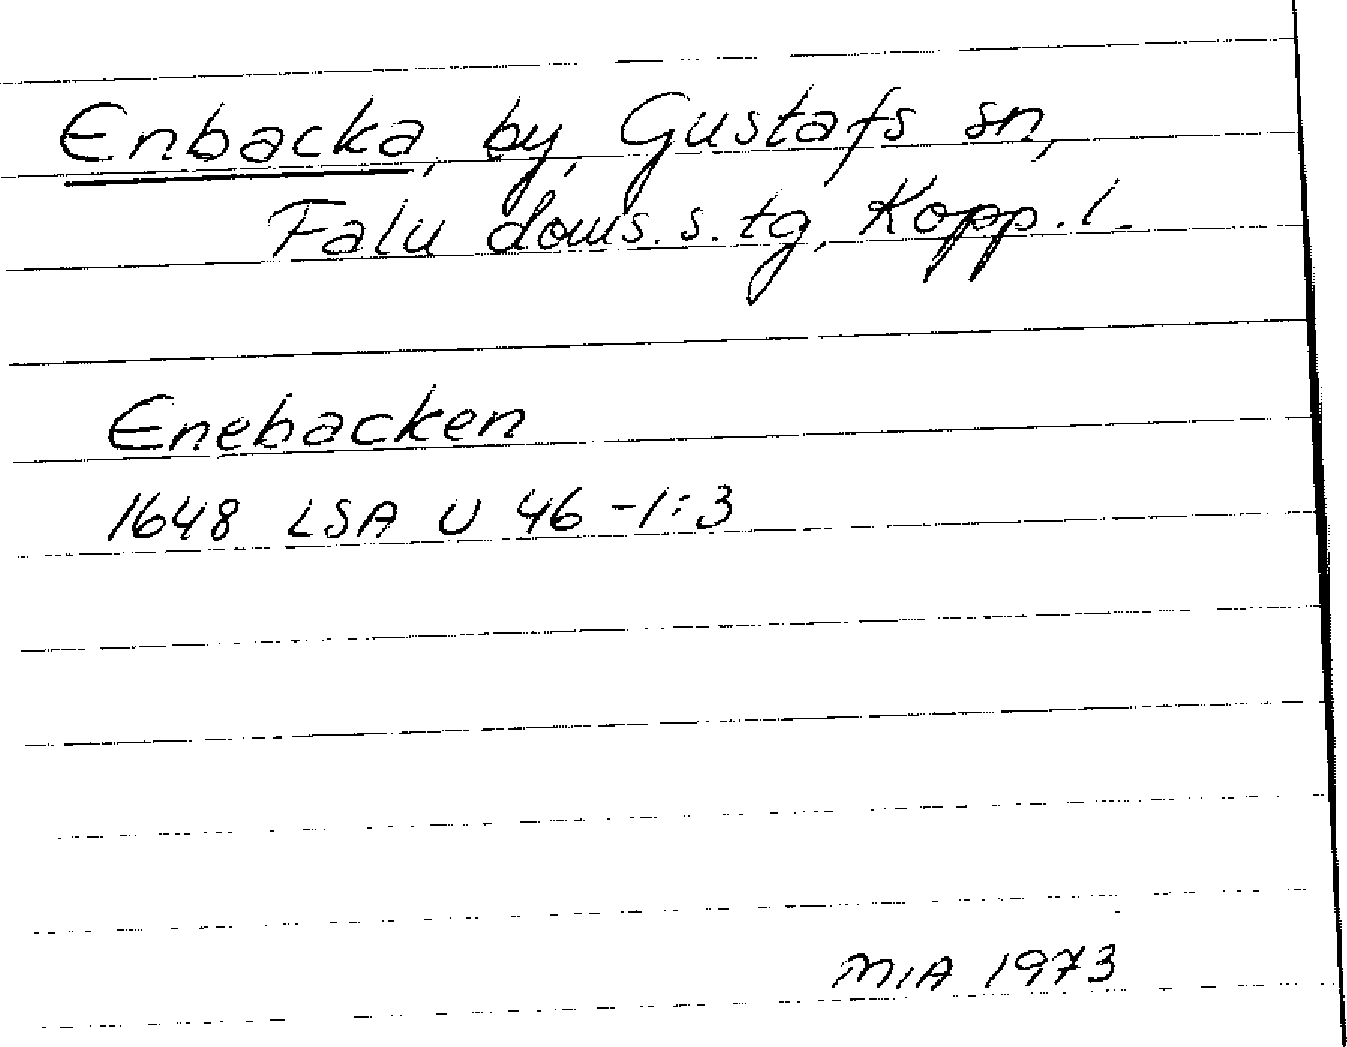 Enbacka, by, Gustafs sn,
Falu doms. s. tg, Kopp. l.
Enebacken
1648 LSA U 46 -1:3
MIA 1973